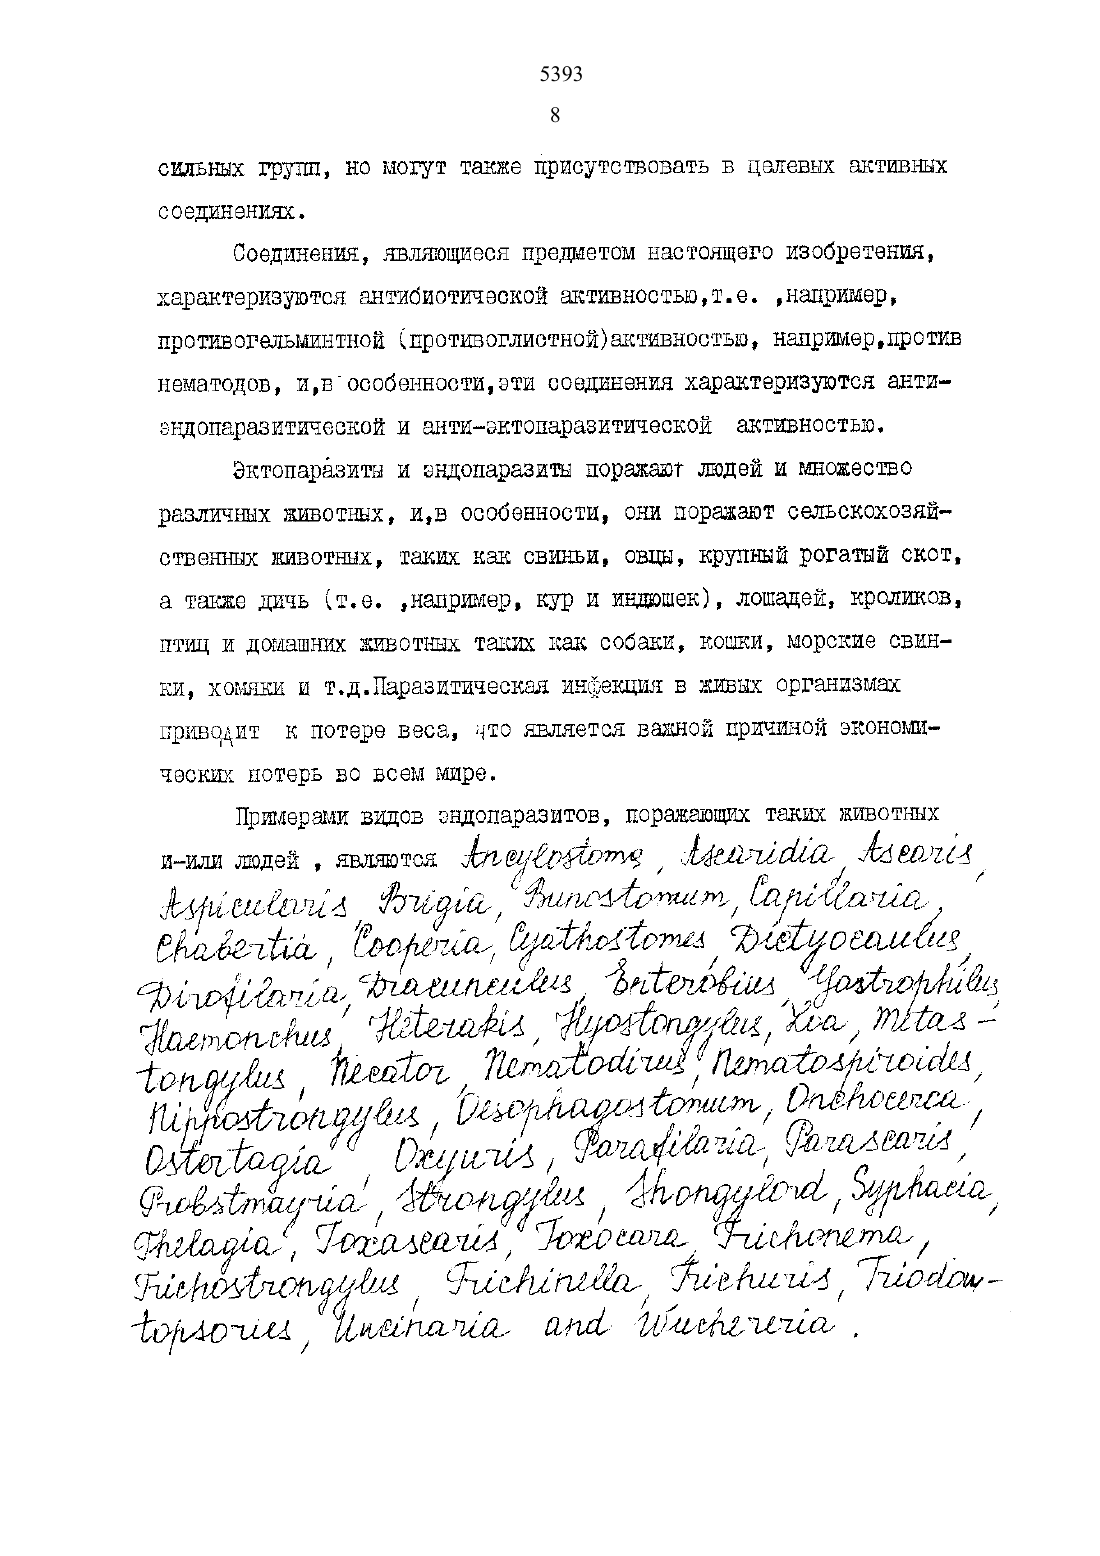 5393
8
сильных групп, но могут также присутствовать в целевых активных
соединениях.
Соединения, являющиеся предметом настоящего изобретения,
характеризуются антибиотической активностью,т.е. ,например,
противогельминтной (противоглистной)активностью, например,против
нематодов, и,в особенности,эти соединения характеризуются анти-
эндопаразитической и анти-эктопаразитической активностью.
Эктопаразиты и эндопаразиты поражают людей и множество
различных животных, и,в особенности, они поражают сельскохозяй-
ственных животных, таких как свиньи, овцы, крупный рогатый скот,
а также дичь (т.е. ,например, кур и индюшек), лошадей, кроликов,
птиц и домашних животных таких как собаки, кошки, морские свин-
ки, хомяки и т.д.Паразитическая инфекция в живых организмах
приводит к потере веса, что является важной причиной экономи-
ческих потерь во всем мире.
Примерами видов эндопаразитов, поражающих таких животных
и-или людей , являются Ancylostoma, Ascaridia, Ascaris,
Aspicularis, Brigia, Bunostomum, Capillaria,
Chabertia, Cooperia, Cyathostomes, Dictyocaulus,
Dirofilaria, Dracunculus, Enterobius, Gastrophilus,
Haemonchus, Heterakis, Hyostongylus, Loa, Metas-
tongylus, Necator, Nematodirus, Nematospiroides,
Nippostrongylus, Oesophagostomum, Onchocerca,
Ostertagia, Oxyuris, Parafilaria, Parascaris,
Probstmayria, Strongylus, Shongylord, Syphacia,
Thelagia, Toxascaris, Toxocara, Trichonema,
Trichostrongylus, Trichinella, Trichuris, Triodon-
topsories, Uncinaria and Wuchereria .